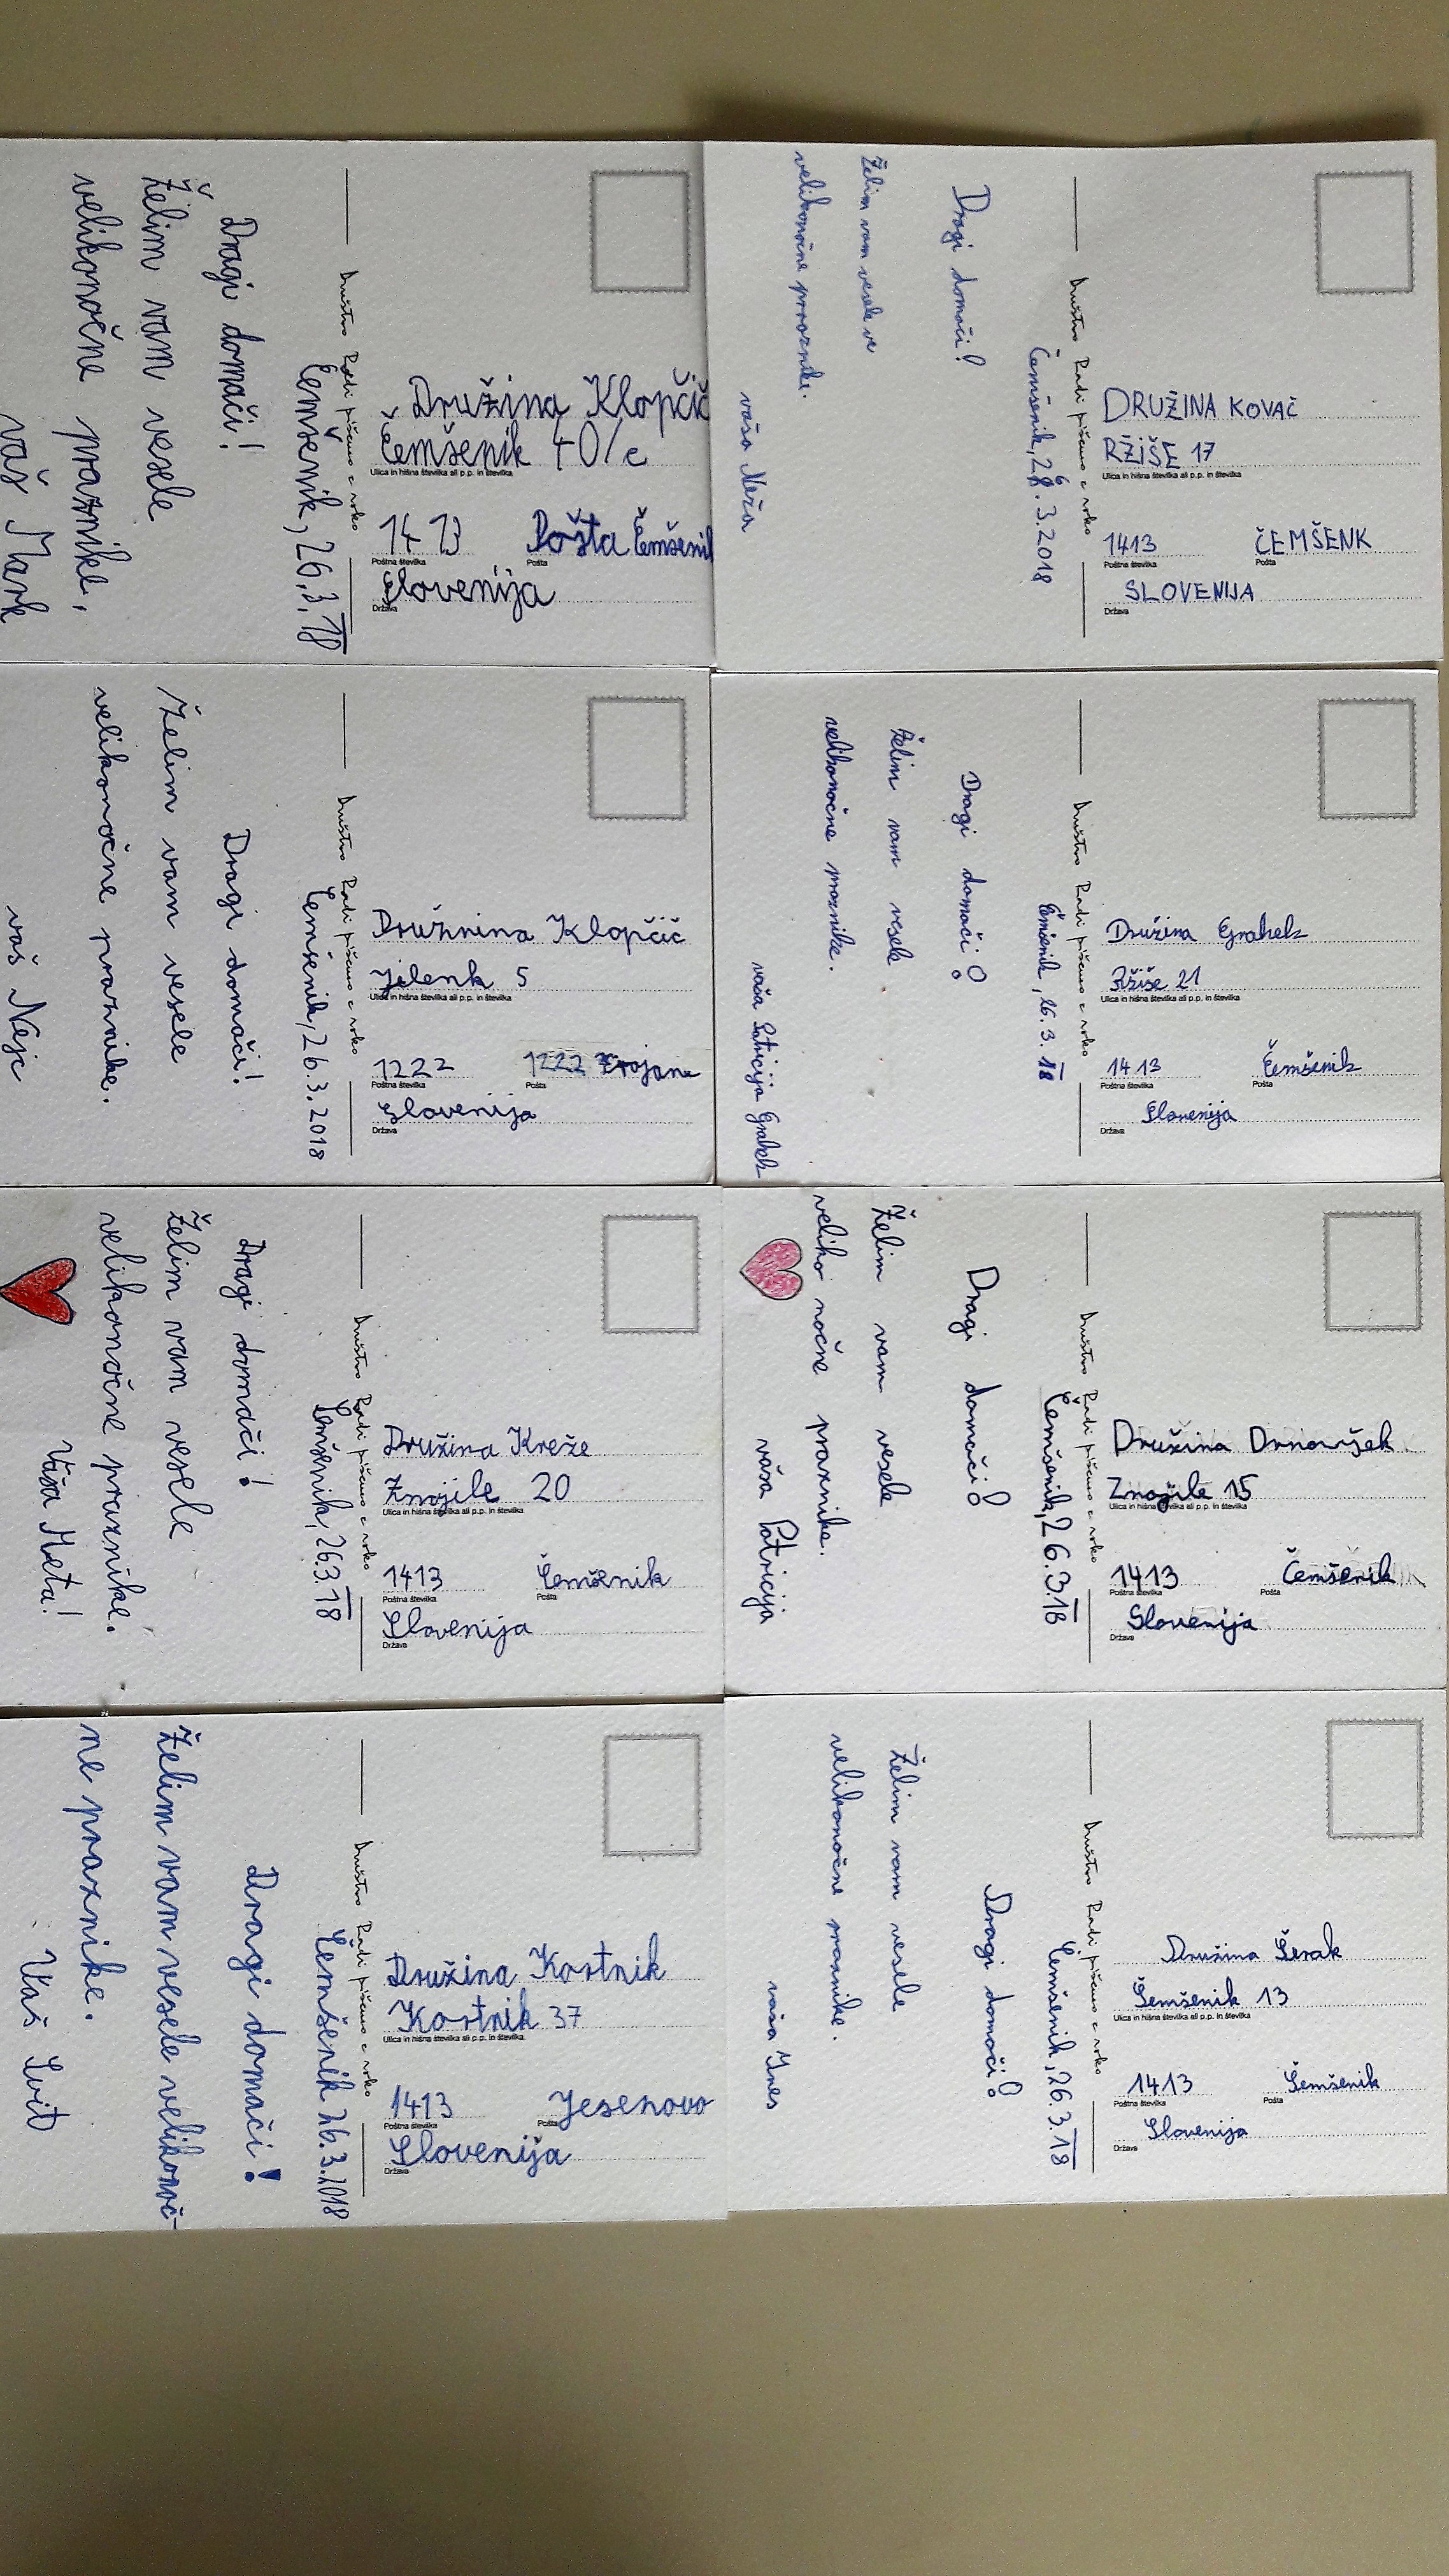 Društvo Radi pišemo z roko
Čemšenik, 26.3.18
Dragi domači!
Želim vam vesele
velikonočne praznike.
vaš Mark
Družina Klopčič
Čemšenik 40/c
Ulica in hišna številka ali p.p. in številka
1413 Pošta Čemšenik
Poštna številka Pošta
Slovenija
Država
Društvo Radi pišemo z roko
Čemšenik, 26.3.2018
Dragi domači!
Želim vam vesele ve
velikonočne praznike.
vaša Neža
DRUŽINA KOVAČ
RŽIŠE 17
Ulica in hišna številka ali p.p. in številka
1413 ČEMŠENK
Poštna številka Pošta
SLOVENIJA
Država
Društvo Radi pišemo z roko
Čemšenik, 26.3.2018
Dragi domači!
Želim vam vesele
velikonočne praznike.
vaš Nejc
Družnina Klopčič
Jelenk 5
Ulica in hišna številka ali p.p. in številka
1222 1222 Trojane
Poštna številka Pošta
Slovenija
Država
Društvo Radi pišemo z roko
Čemšenik, 26.3.18
Dragi domači!
Želim vam vesele
velikonočne praznike.
vaša Patricija Grahek
Družina Grahek
Ržiše 21
Ulica in hišna številka ali p.p. in številka
1413 Čemšenik
Poštna številka Pošta
Slovenija
Država
Društvo Radi pišemo z roko
Čemšenik, 26.3.18
Dragi domači!
Želim vam vesele
velikonočne praznike.
Vaša Meta!
Družina Kreže
Znojile 20
Ulica in hišna številka ali p.p. in številka
1413 Čemšenik
Poštna številka Pošta
Slovenija
Država
Društvo Radi pišemo z roko
Čemšenik, 26.3.18
Dragi domači!
Želim vam vesele
veliko nočne praznike.
vaša Patricija
Družina Drnovšek
Znojile 15
Ulica in hišna številka ali p.p. in številka
1413 Čemšenik
Poštna številka Pošta
Slovenija
Država
Društvo Radi pišemo z roko
Čemšenik 26.3.2018
Dragi domači!
Želim vam vesele velikonoč-
ne praznike.
Vaš Svit
Družina Kortnik
Kortnik 37
Ulica in hišna številka ali p.p. in številka
1413 Jesenovo
Poštna številka Pošta
Slovenija
Država
Društvo Radi pišemo z roko
Čemšenik, 26.3.18
Dragi domači!
Želim vam vesele
velikonočne praznike.
vaša Ines
Družina Šerak
Čemšenik 13
Ulica in hišna številka ali p.p. in številka
1413 Čemšenik
Poštna številka Pošta
Slovenija
Država